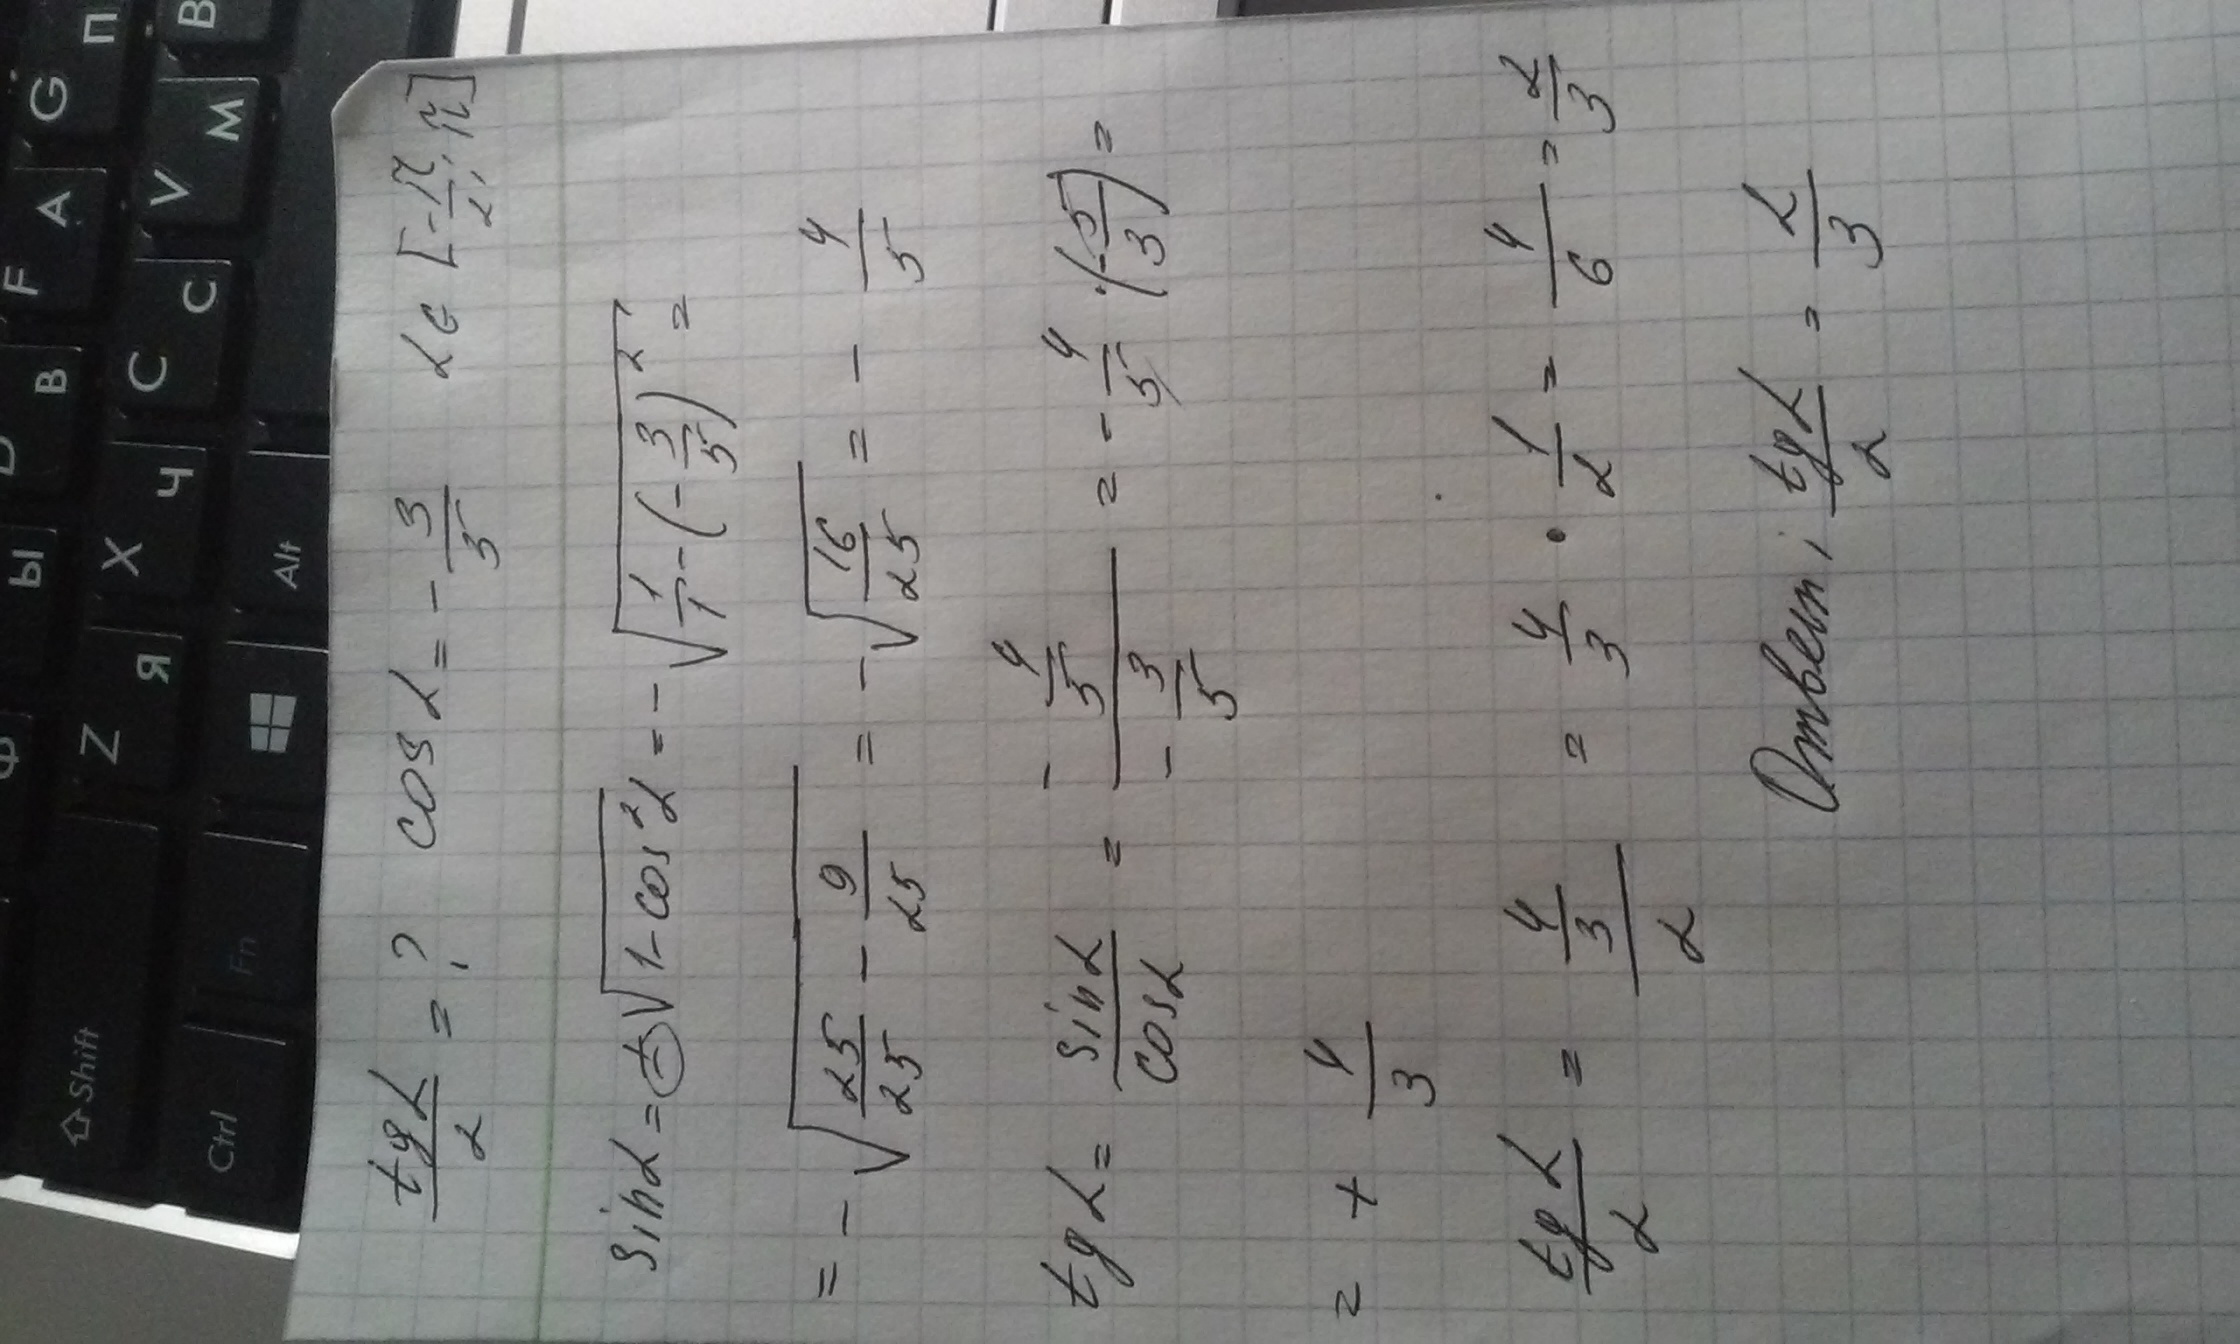 tgα/2 = ? cos α = - 3/5 α ∈ [-π/2; π]
sin α = ± √(1 - cos²α) = - √(1/1 - (-3/5)²) =
= - √(25/25 - 9/25) = - √(16/25) = - 4/5
tg α = sin α/cos α = (- 4/5)/(- 3/5) = - 4/5 · (-5/3) =
= + 4/3
tg α/2 = (4/3)/2 = 4/3 · 1/2 = 4/6 = 2/3
Ответ: tg α/2 = 2/3
Shift
Z Я
X Ч
C С
V М
Ctrl
Fn
Alt
Ф
Ы
В
F А
G П
В